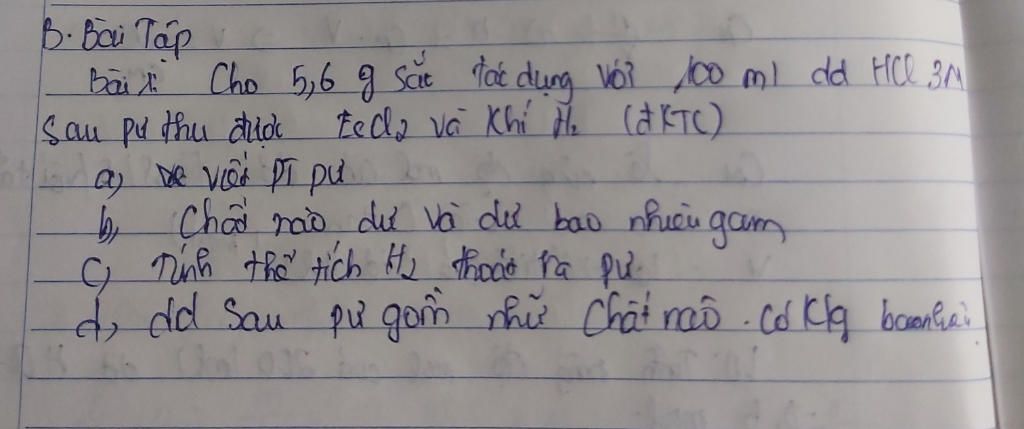 B. Bài Tập
Bài 1: Cho 5,6 g Sắt tác dụng với 100 ml dd HCl 3M
Sau pư thu được FeCl2 và Khí H2 (đKTC)
a, viết PT pư
b, Chất nào dư và dư bao nhiêu gam
C, Tính thể tích H2 thoát ra pư.
d, dd Sau pư gồm những Chất nào. Có Klg